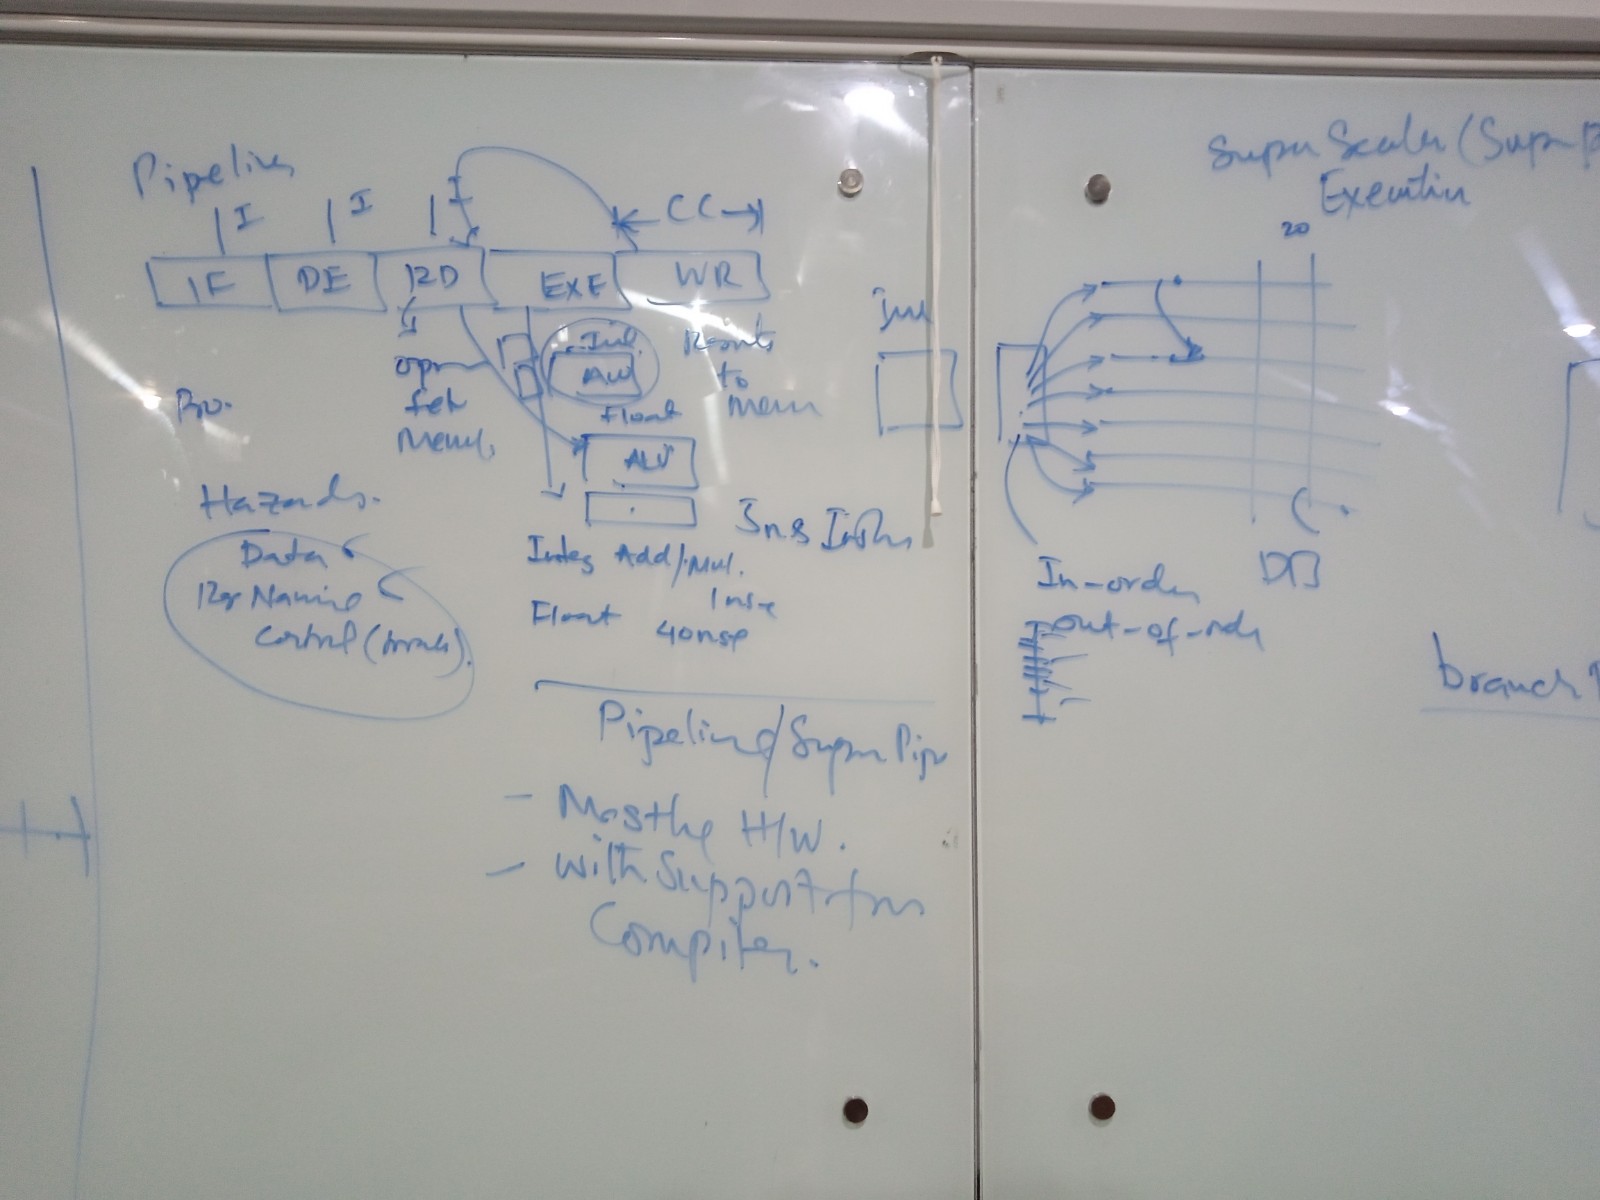 Pipeline
I I I I
CC
IF DE RD EXE WR
Int.
ALU
Float
ALU
Results
to
Mem
opr
fet
Mem.
Pro.
Hazards.
Data
Reg Naming
Control (branch).
Integ Add/Mul.
1nse
Float 40nse
Pipeline/Super Pipe
- Mostly H/W.
- with support from
Compiler.
Super Scaler (Super P
Execution
20
In-order
out-of-orde
DB
branch P